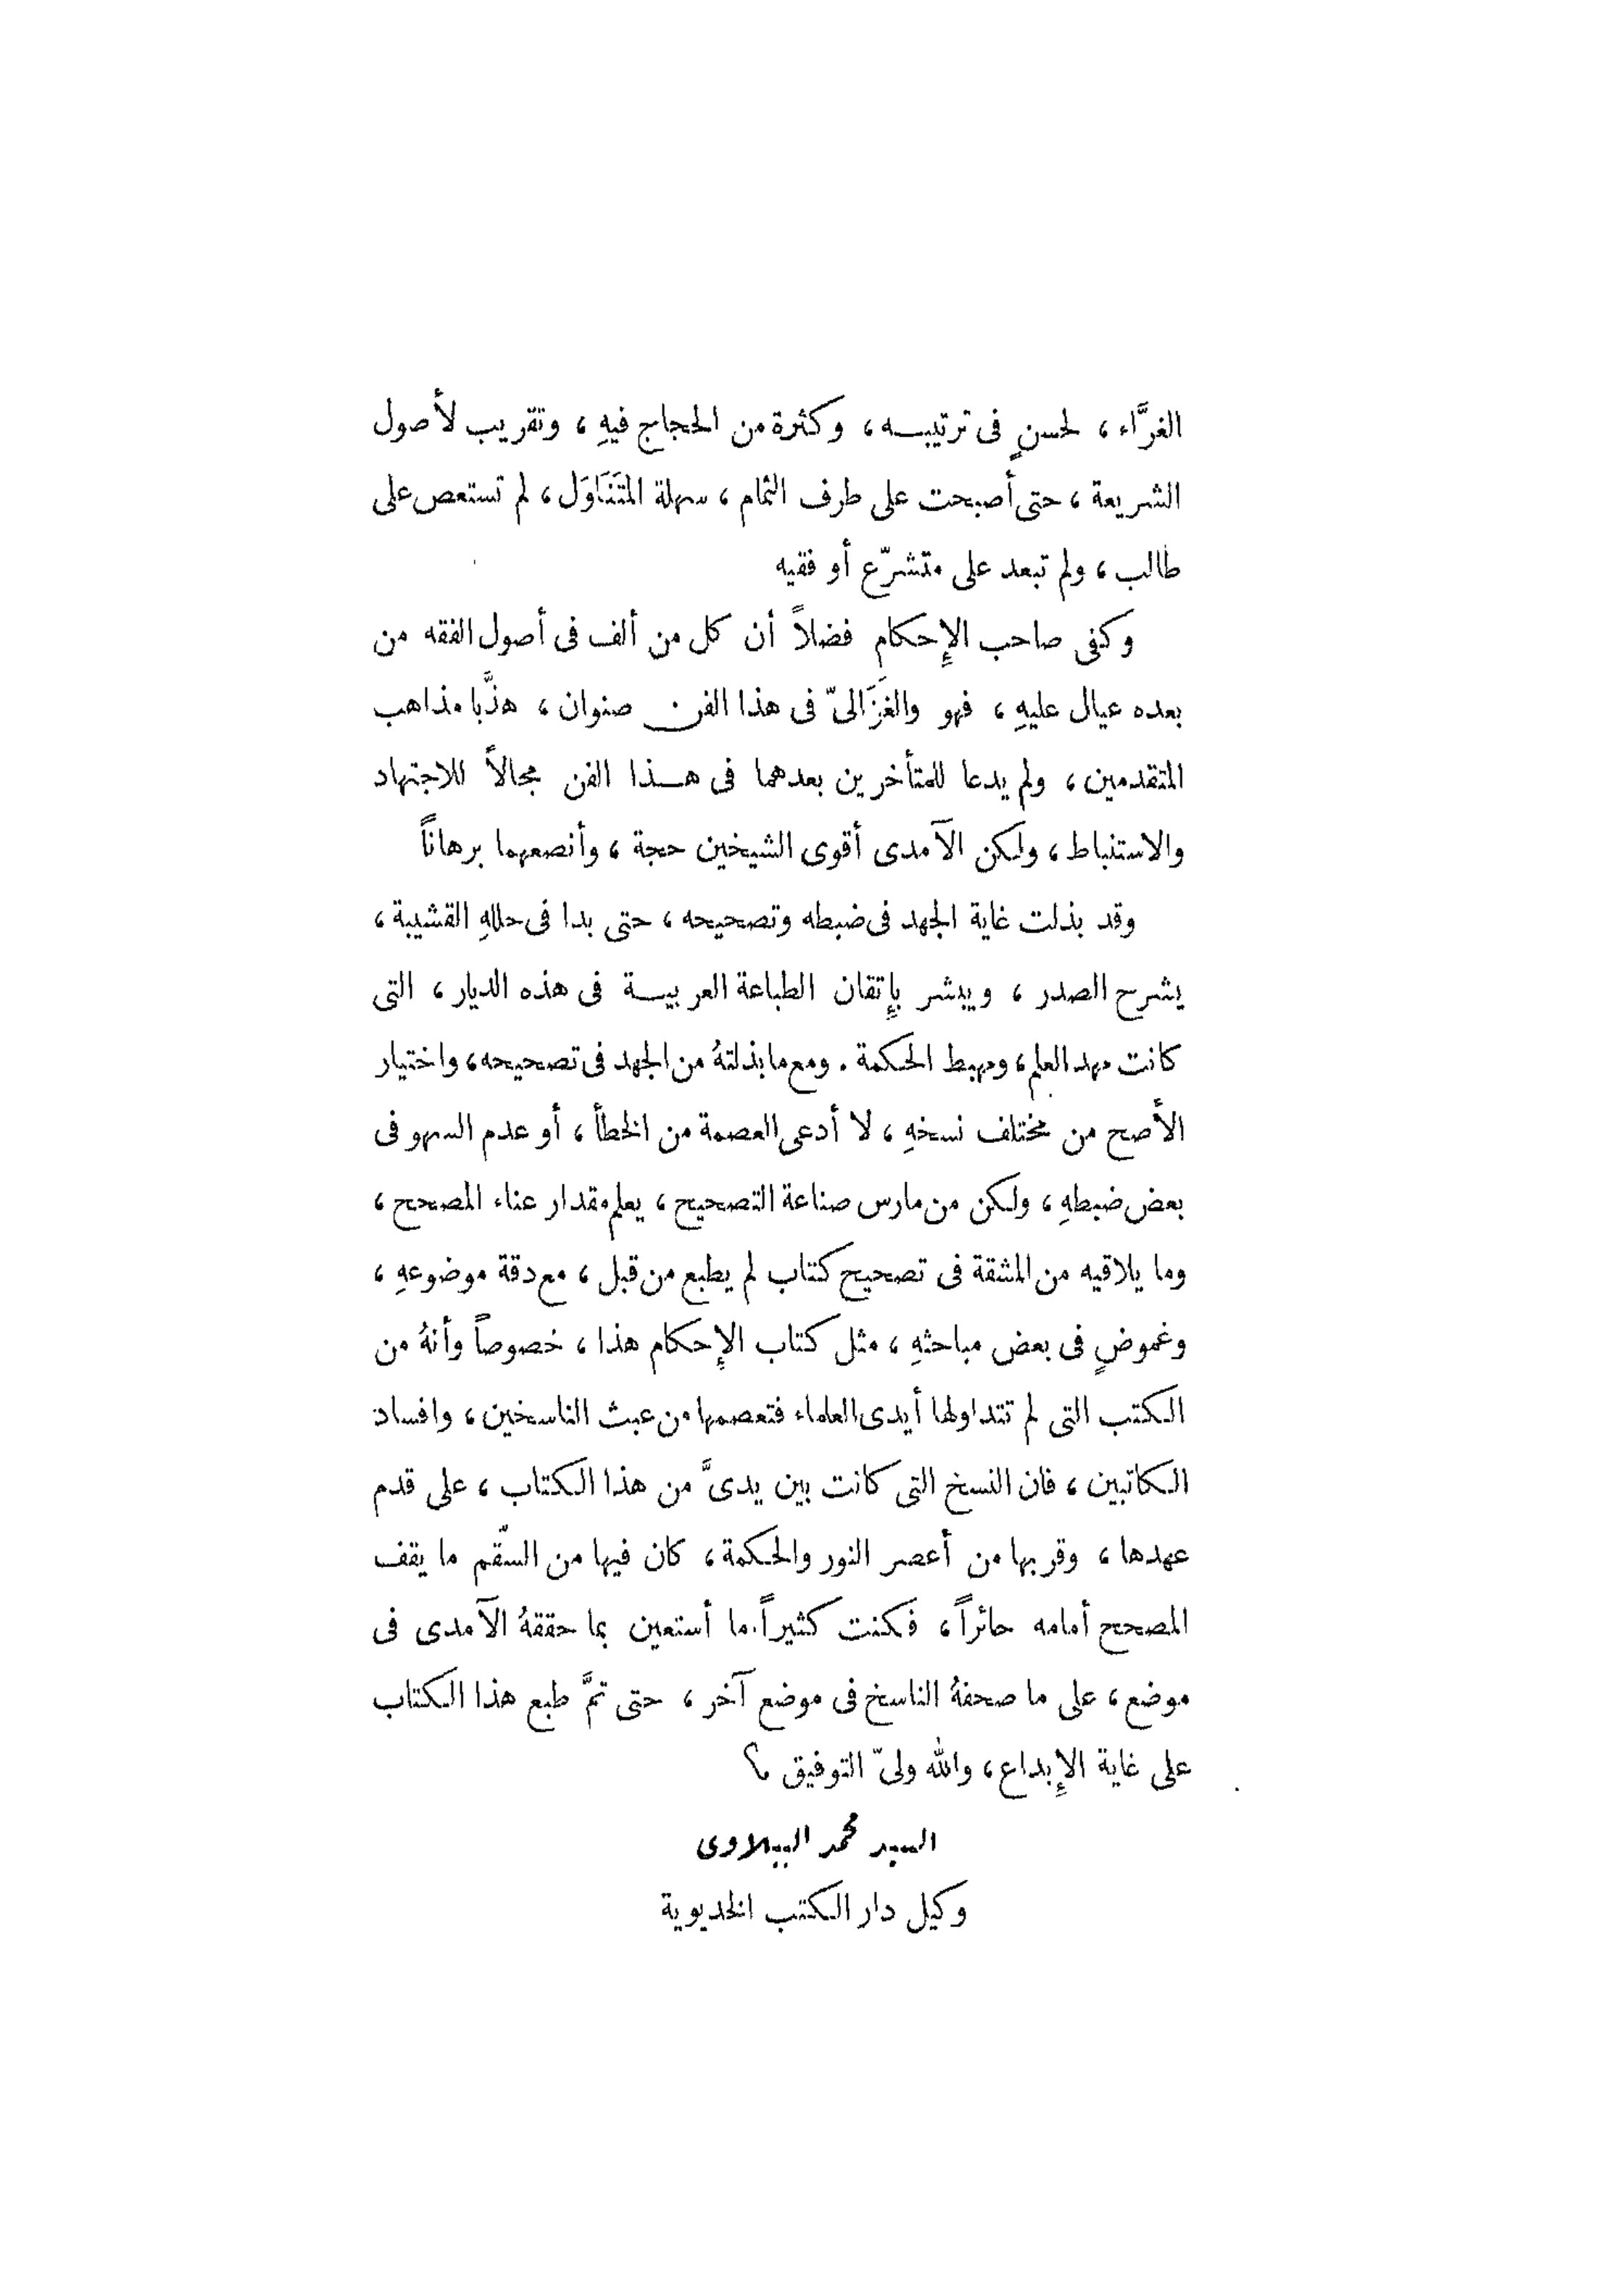 الغرَّاء ، لحسنٍ فى ترتيبه ، وكثرة من الحجاج فيهِ ، وتقريب لأصول
الشريعة ، حتى أصبحت على طرف الثمام ، سهلة المتَنَاوَل ، لم تستعص على
طالب ، ولم تبعد على متشرّع أو فقيه
وكفى صاحب الإِحكام فضلاً أن كل من ألف فى أصول الفقه من
بعده عيال عليهِ ، فهو والغَزَالىّ فى هذا الفن صنوان ، هذَّبا مذاهب
المتقدمين ، ولم يدعا للمتأخرين بعدهما فى هذا الفن مجالاً للاجتهاد
والاستنباط ، ولكن الآمدى أقوى الشيخين حجة ، وأنصعهما برهاناً
وقد بذلت غاية الجهد فى ضبطه وتصحيحه ، حتى بدا فى حللهِ القشيبة ،
يشرح الصدر ، ويبشر بإِتقان الطباعة العربية فى هذه الديار ، التى
كانت مهد العلم ، ومهبط الحكمة . ومع ما بذلتهُ من الجهد فى تصحيحه ، واختيار
الأصح من مختلف نسخهِ ، لا أدعى العصمة من الخطأ ، أو عدم السهو فى
بعض ضبطهِ ، ولكن من مارس صناعة التصحيح ، يعلم مقدار عناء المصحح ،
وما يلاقيه من المشقة فى تصحيح كتاب لم يطبع من قبل ، مع دقة موضوعهِ ،
وغموضٍ فى بعض مباحثهِ ، مثل كتاب الإِحكام هذا ، خصوصاً وأنهُ من
الكتب التى لم تتداولها أيدى العلماء فتعصمها من عبث الناسخين ، وافساد
الكاتبين ، فان النسخ التى كانت بين يدىَّ من هذا الكتاب ، على قدم
عهدها ، وقربها من أعصر النور والحكمة ، كان فيها من السّقم ما يقف
المصحح أمامه حائراً ، فكنت كثيراً ما أستعين بما حققهُ الآمدى فى
موضع ، على ما صحفهُ الناسخ فى موضع آخر ، حتى تمَّ طبع هذا الكتاب
على غاية الإِبداع ، والله ولىّ التوفيق ؟
السيد محمد الببلاوى
وكيل دار الكتب الخديوية